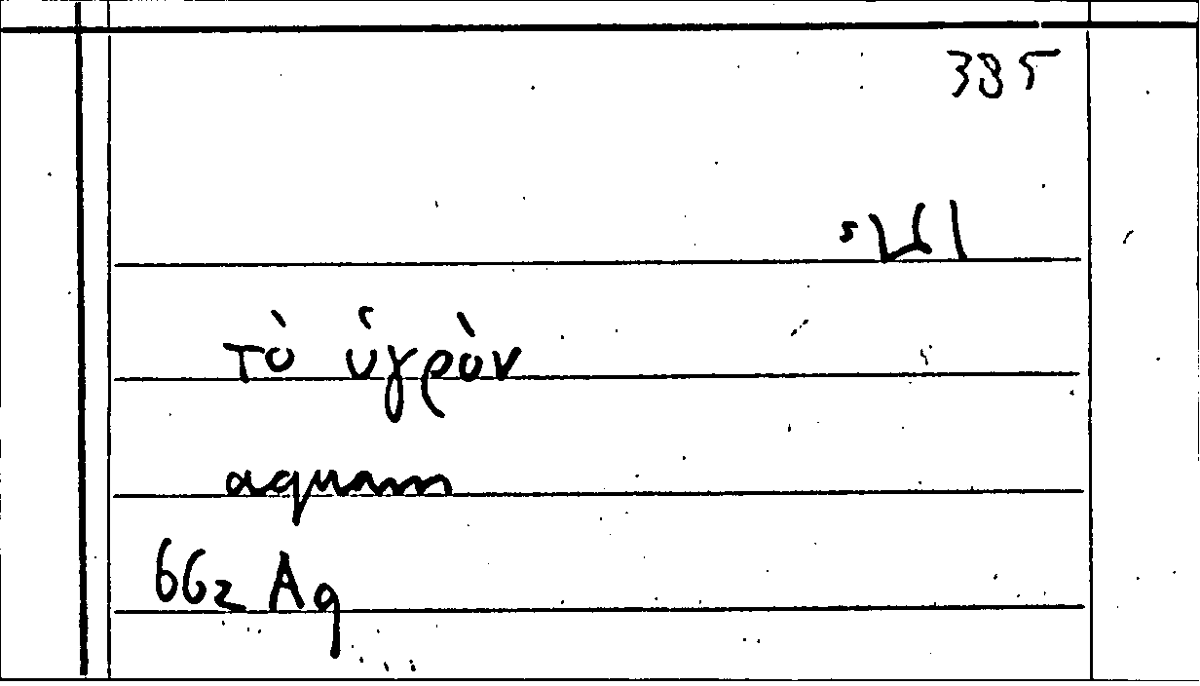 385
τὸ ὑγρὸν
aquam
66z Aq